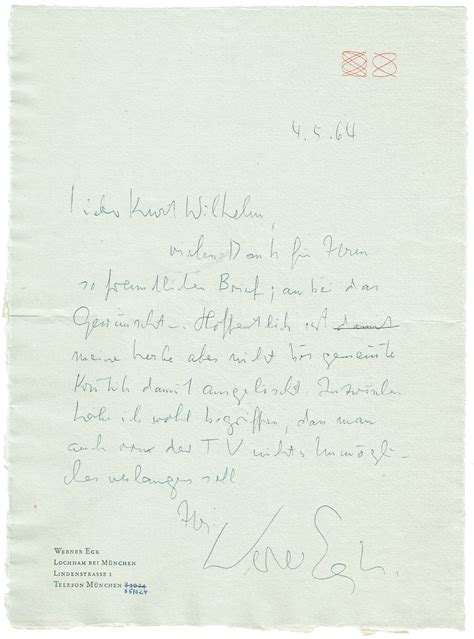 4.5.64
Lieber Kurt Wilhelm,
vielen Dank für Ihren
so freundlichen Brief; anbei das
Gewünschte. Hoffentlich ist damit
meine herbe aber nicht bös gemeinte
Kritik damit ausgelöscht. Inzwischen
habe ich wohl begriffen, dass man
auch von der TV nichts Unmögli-
ches verlangen soll.
Ihr
Werner Egk.
WERNER EGK
LOCHHAM BEI MÜNCHEN
LINDENSTRASSE 1
TELEFON MÜNCHEN